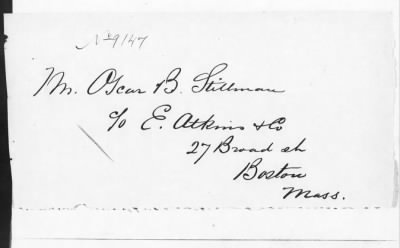 No 9147
Mr. Oscar B. Stillman
c/o E. Atkins & Co
27 Broad st
Boston
Mass.